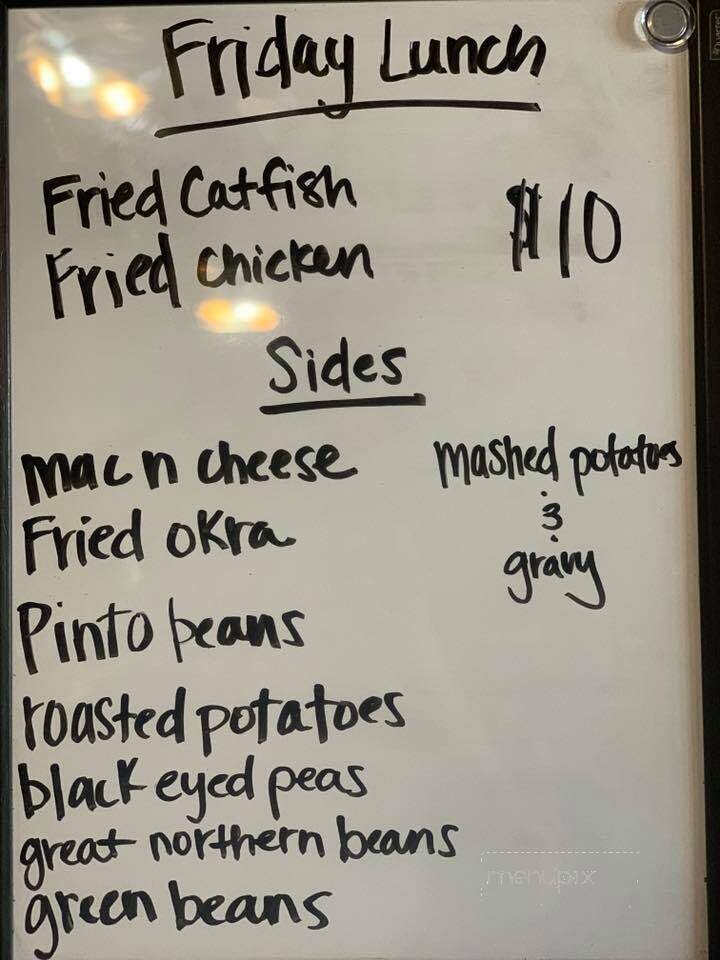 Friday Lunch
Fried Catfish
Fried Chicken
$10
Sides
mac n cheese
Fried okra
Pinto beans
roasted potatoes
black eyed peas
great northern beans
green beans
mashed potatoes
&
gravy
menupix